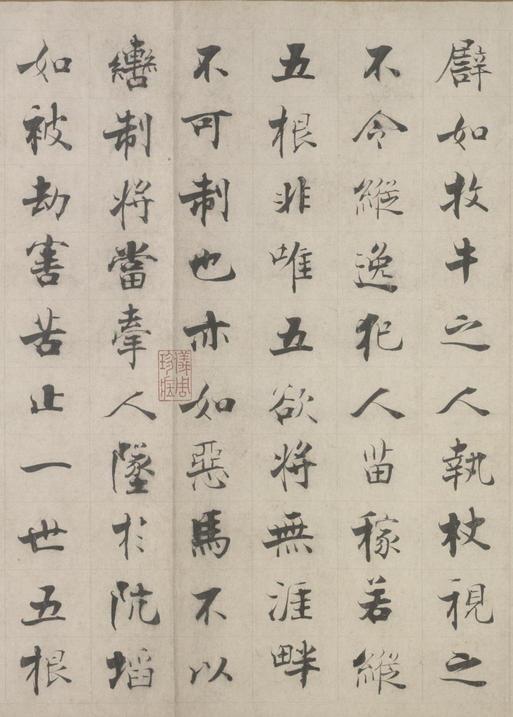 譬如牧牛之人執杖視之
不令縱逸犯人苗稼若縱
五根非唯五欲將無涯畔
不可制也亦如惡馬不以
轡制將當牽人墜於阬塪
如被劫害苦止一世五根
儀周珍藏